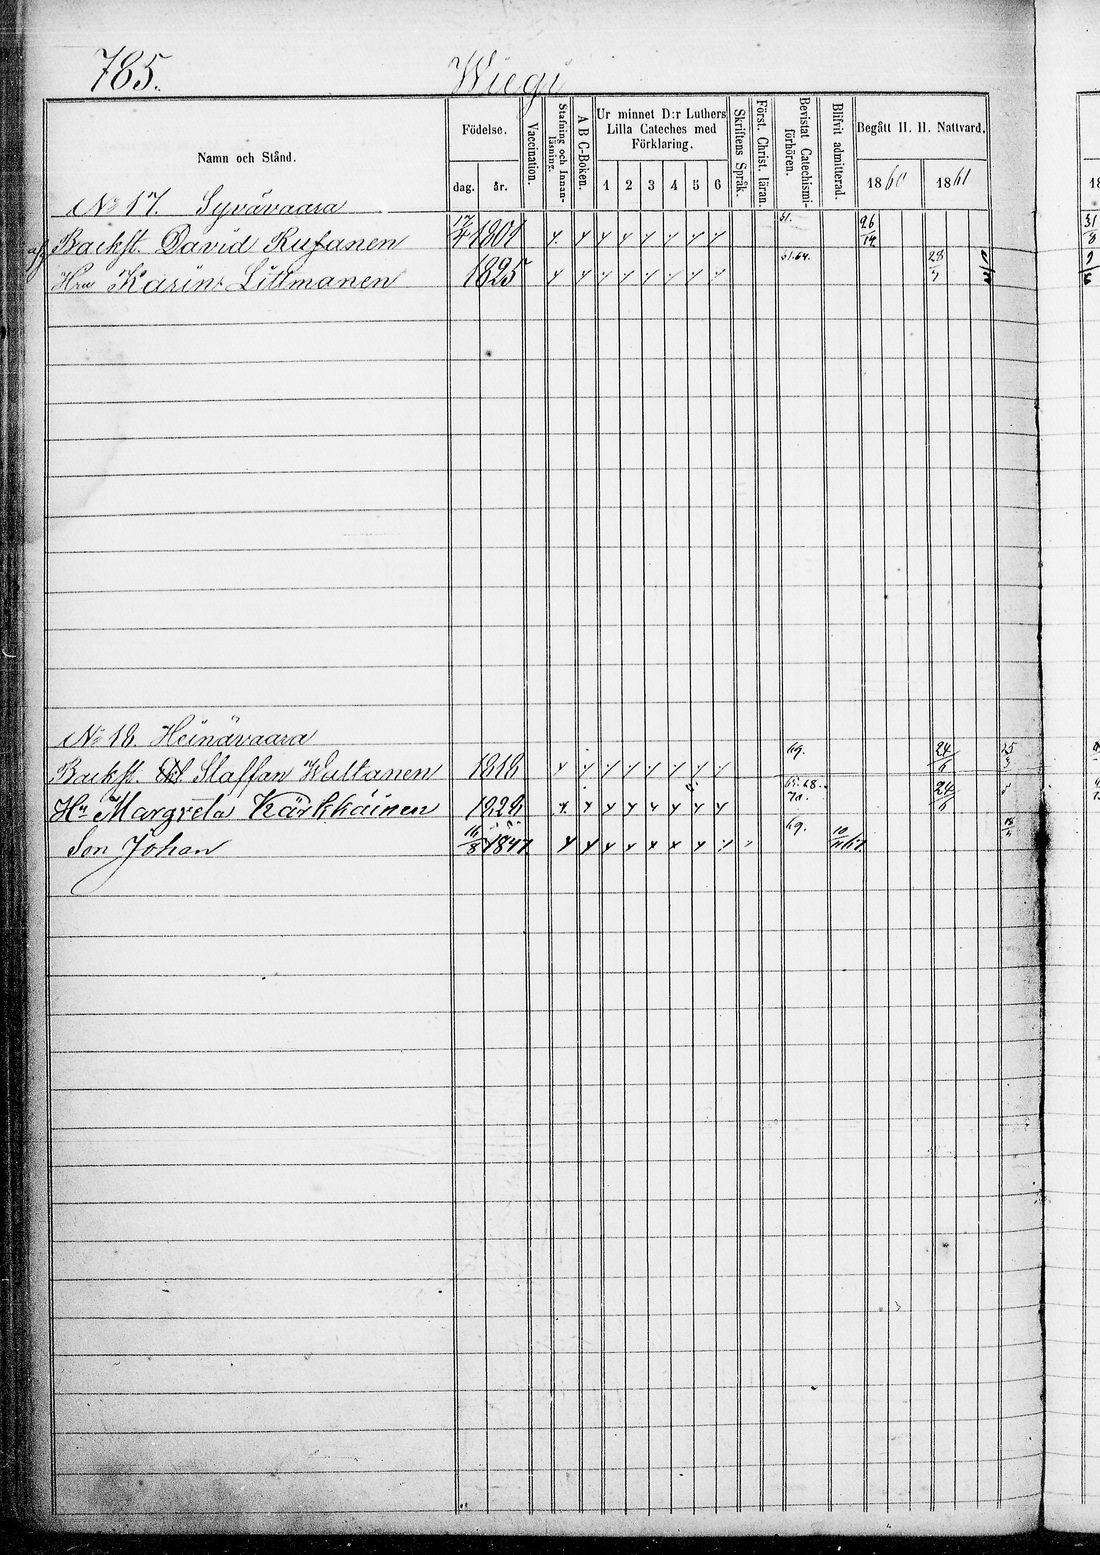 785.
Wiegi
Namn och Stånd.
Födelse.
dag. år.
Vaccination.
Stafning och Innan-läsning.
A B C-Boken.
Ur minnet D:r Luthers Lilla Cateches med Förklaring.
1 2 3 4 5 6
Skriftens Språk.
Först. Christ. läran.
Bevistat Catechismi-förhören.
Blifvit admitterad.
Begått H. H. Nattvard.
1860 1861
No 17. Syvävaara
Backst. David Rusanen 17/4 1801 61. 26/12
Hru Karin Littmanen 1825 61.64. 23/3
No 18. Heinävaara
Backst. Staffan Wultanen 1818 69. 24/6
Hu Margreta Kärkkäinen 1828 65.68. 70. 24/6
Son Johan 16/8 1847 69.